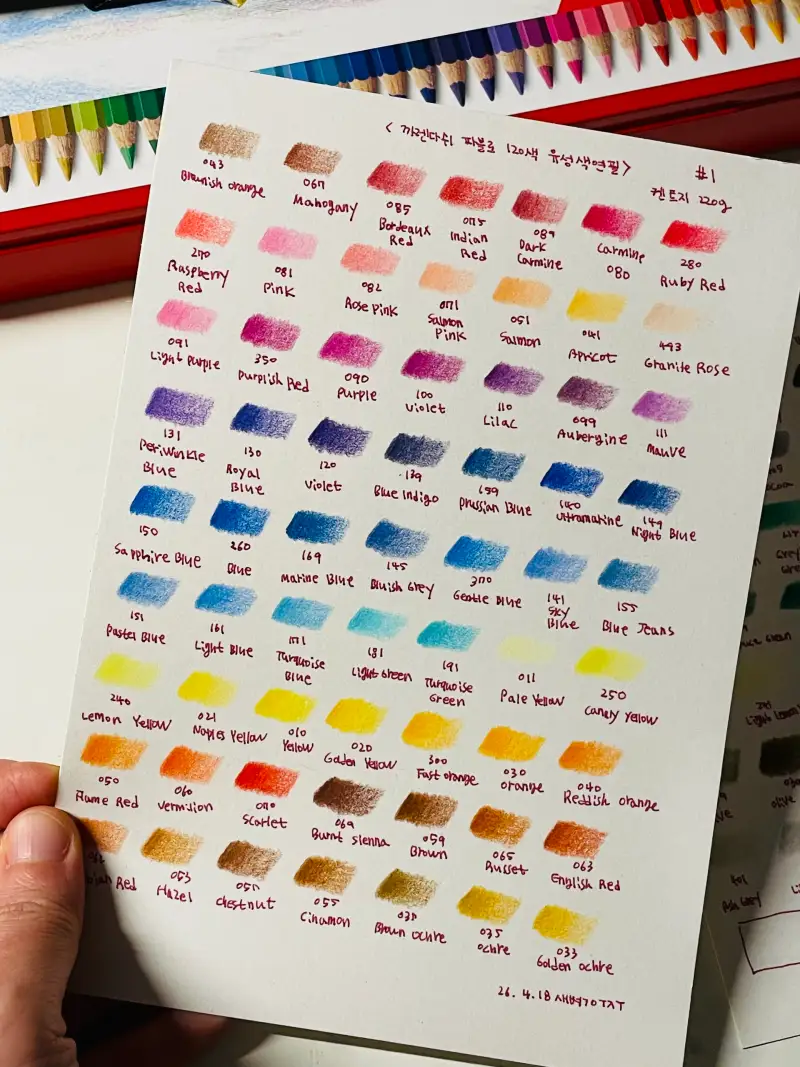 < 까렌다쉬 파블로 120색 유성색연필 > #1
켄트지 220g
043 067 085 075 089 Carmine 280
Brownish orange Mahogany Bordeaux Red Indian Red Dark Carmine 080 Ruby Red
270 081 082 071 051 041 493
Raspberry Red Pink Rose Pink Salmon Pink Salmon Apricot Granite Rose
091 350 090 100 110 099 111
Light purple Purplish Red Purple Violet Lilac Aubergine Mauve
131 130 120 139 159 140 149
Periwinkle Blue Royal Blue Violet Blue Indigo Prussian Blue Ultramarine Night Blue
150 260 169 145 370 141 155
Sapphire Blue Blue Marine Blue Bluish Grey Gentle Blue Sky Blue Blue Jeans
151 161 171 181 191 011 250
Pastel Blue Light Blue Turquoise Blue Light Green Turquoise Green Pale Yellow Canary Yellow
240 021 010 020 300 030 040
Lemon Yellow Naples Yellow Yellow Golden Yellow Fast orange orange Reddish orange
050 060 070 069 059 065 063
Flame Red Vermilion Scarlet Burnt Sienna Brown Russet English Red
053 057 055 037 035 033
Red Hazel Chestnut Cinamon Brown Ochre Ochre Golden Ochre
26. 4. 18 새벽